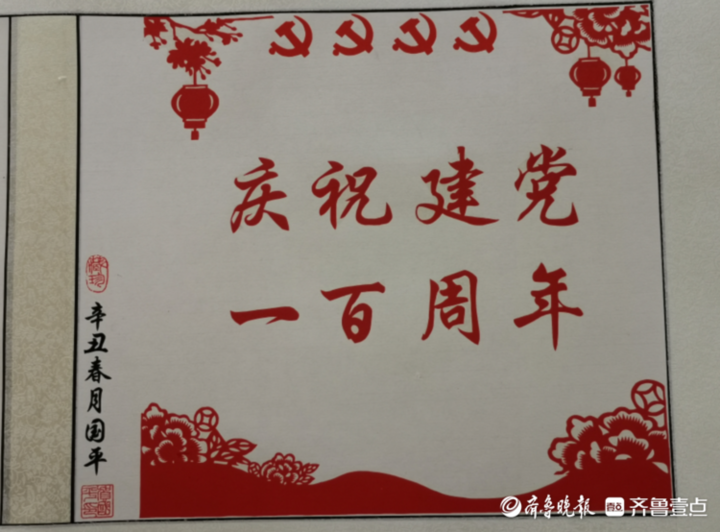 庆祝建党
一百周年
辛丑春月国平
齐鲁晚报 齐鲁壹点